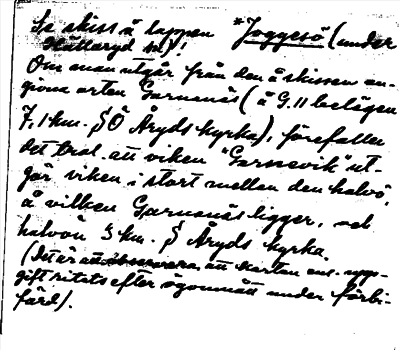 Se skiss å lappen *Joggesö (under
Hättaryd sn)!
Om man utgår från den å skissen an-
givna orten Garnanäs (å G. 11 belägen
7,1 km. S Ö Åryds kyrka), förefaller
det troal. att viken "Garnevik" ut-
gör viken i stort mellan den halvö,
å vilken Garnanäs ligger, och
halvön 5 km. S Åryds kyrka.
(Det är att observera, att kartan enl. upp-
gift ritats efter ögonmått under förbi-
färd).